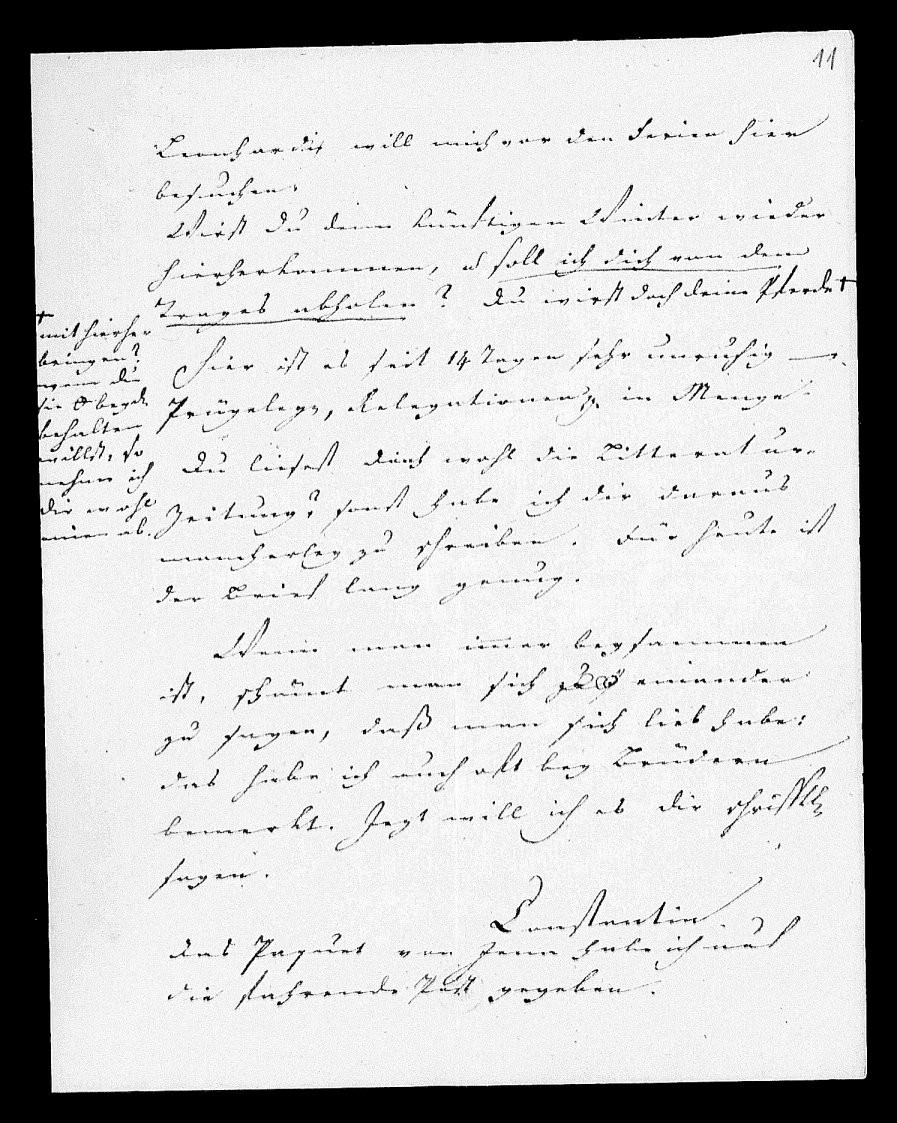 11
Leonhardis will mich vor den Ferien hier
besuchen.
Wirst du denn künftigen Winter wieder
hierherkommen, u soll ich dich von dem
Trages abholen? du wirst doch deine Pferde +
+
mit hierher
bringen?
wenn du
sie
behalten
willst, so
nehme ich
dir wohl
einen ab.
Hier ist es seit 14 Tagen sehr unruhig —
Prügeleyn, Relegationen in Menge.
du liesest doch wohl die Litteratur-
Zeitung? sonst habe ich dir daraus
mancherley zu schreiben. Für heute ist
der Brief lang genug.
Wenn man immer beysammen
ist, schämt man sich einander
zu sagen, daß man sich lieb habe:
das habe ich auch oft bey Brüdern
bemerkt. Jezt will ich es dir schriftl
sagen.
Constantin
das Paquet von Jena habe ich auf
die fahrende Post gegeben.